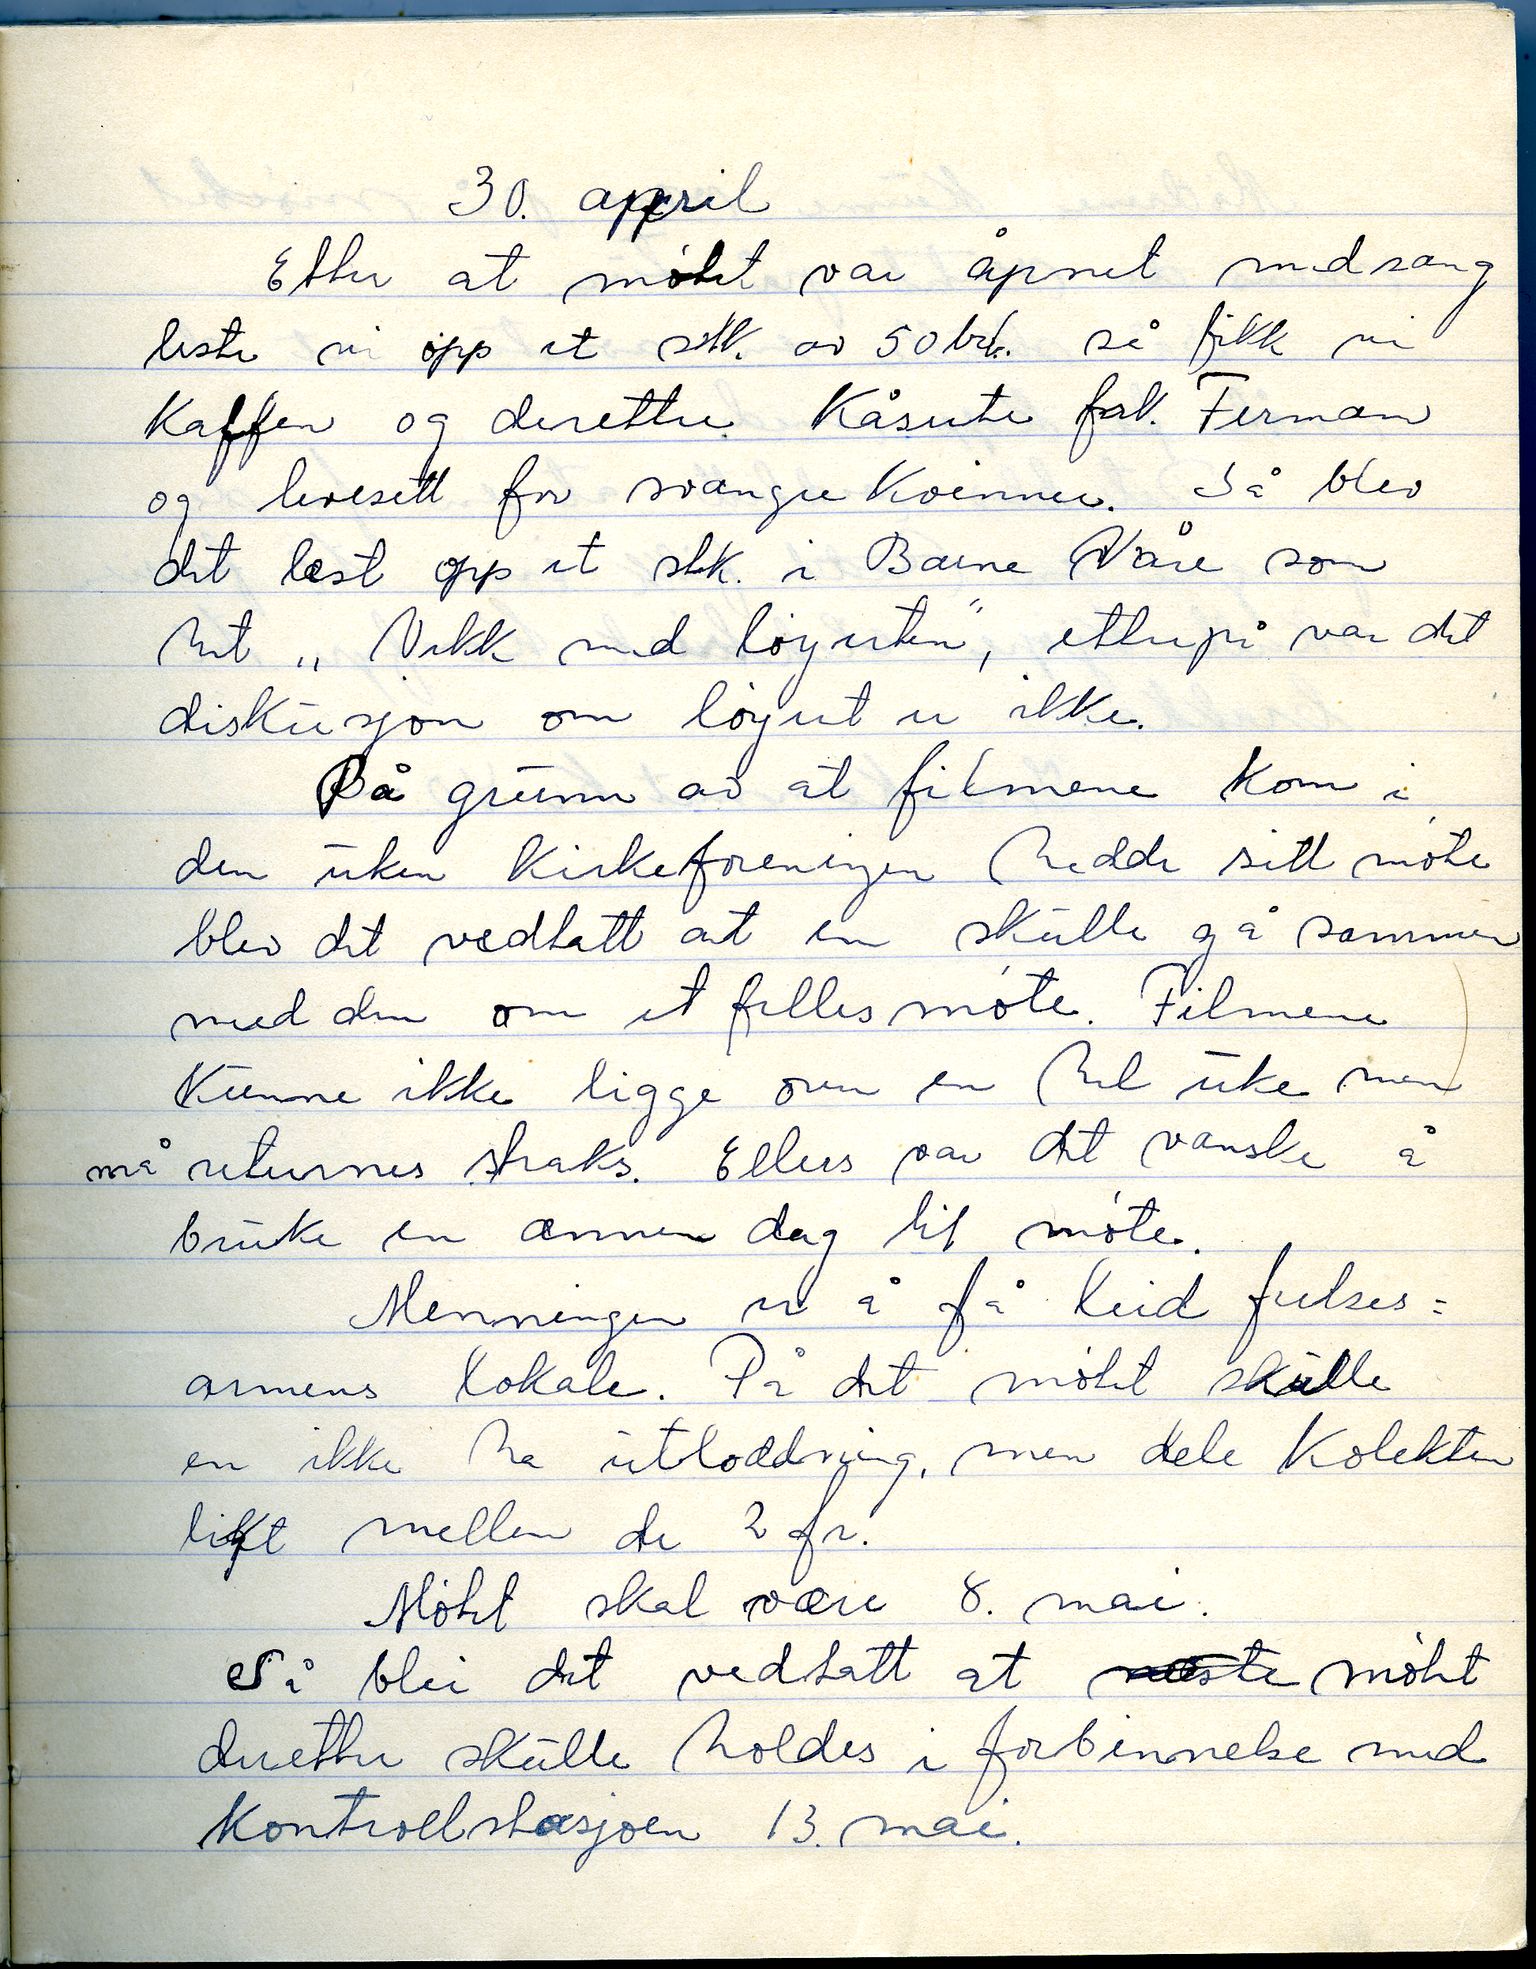 30. april
Etter at møtet var åpnet med sang
leste vi opp et stk. av 50 så fikk vi
Kaffen og deretter Kåserte frk. Ferman
og levesett for svangre Kvinner. Så blev
det lest opp et stk. i Barne Våre som
het „ Vekk med løgusten", etterpå var det
diskusjon om løyert er ikke.
På grunn av at filmene kom i
den uken Kirkeforeningen hadde sitt møte
blev det vedtatt at en skulle gå sammen
med den om et felles møte. Filmene
Kunne ikke ligge over en hel uke men
må returnes straks. Ellers var det vanske å
bruke en annen dag til møte.
Menningen er å få leid frelses=
armens lokale. På det møtet skulle
en ikke ha utloddning, men dele Kolekten
likt mellem de 2 fr.
Møtet skal være 8. mai.
Så blei det vedtatt at neste møtet
deretter skulle holdes i forbinnelse med
Kontrollstasjoen 13. mai.